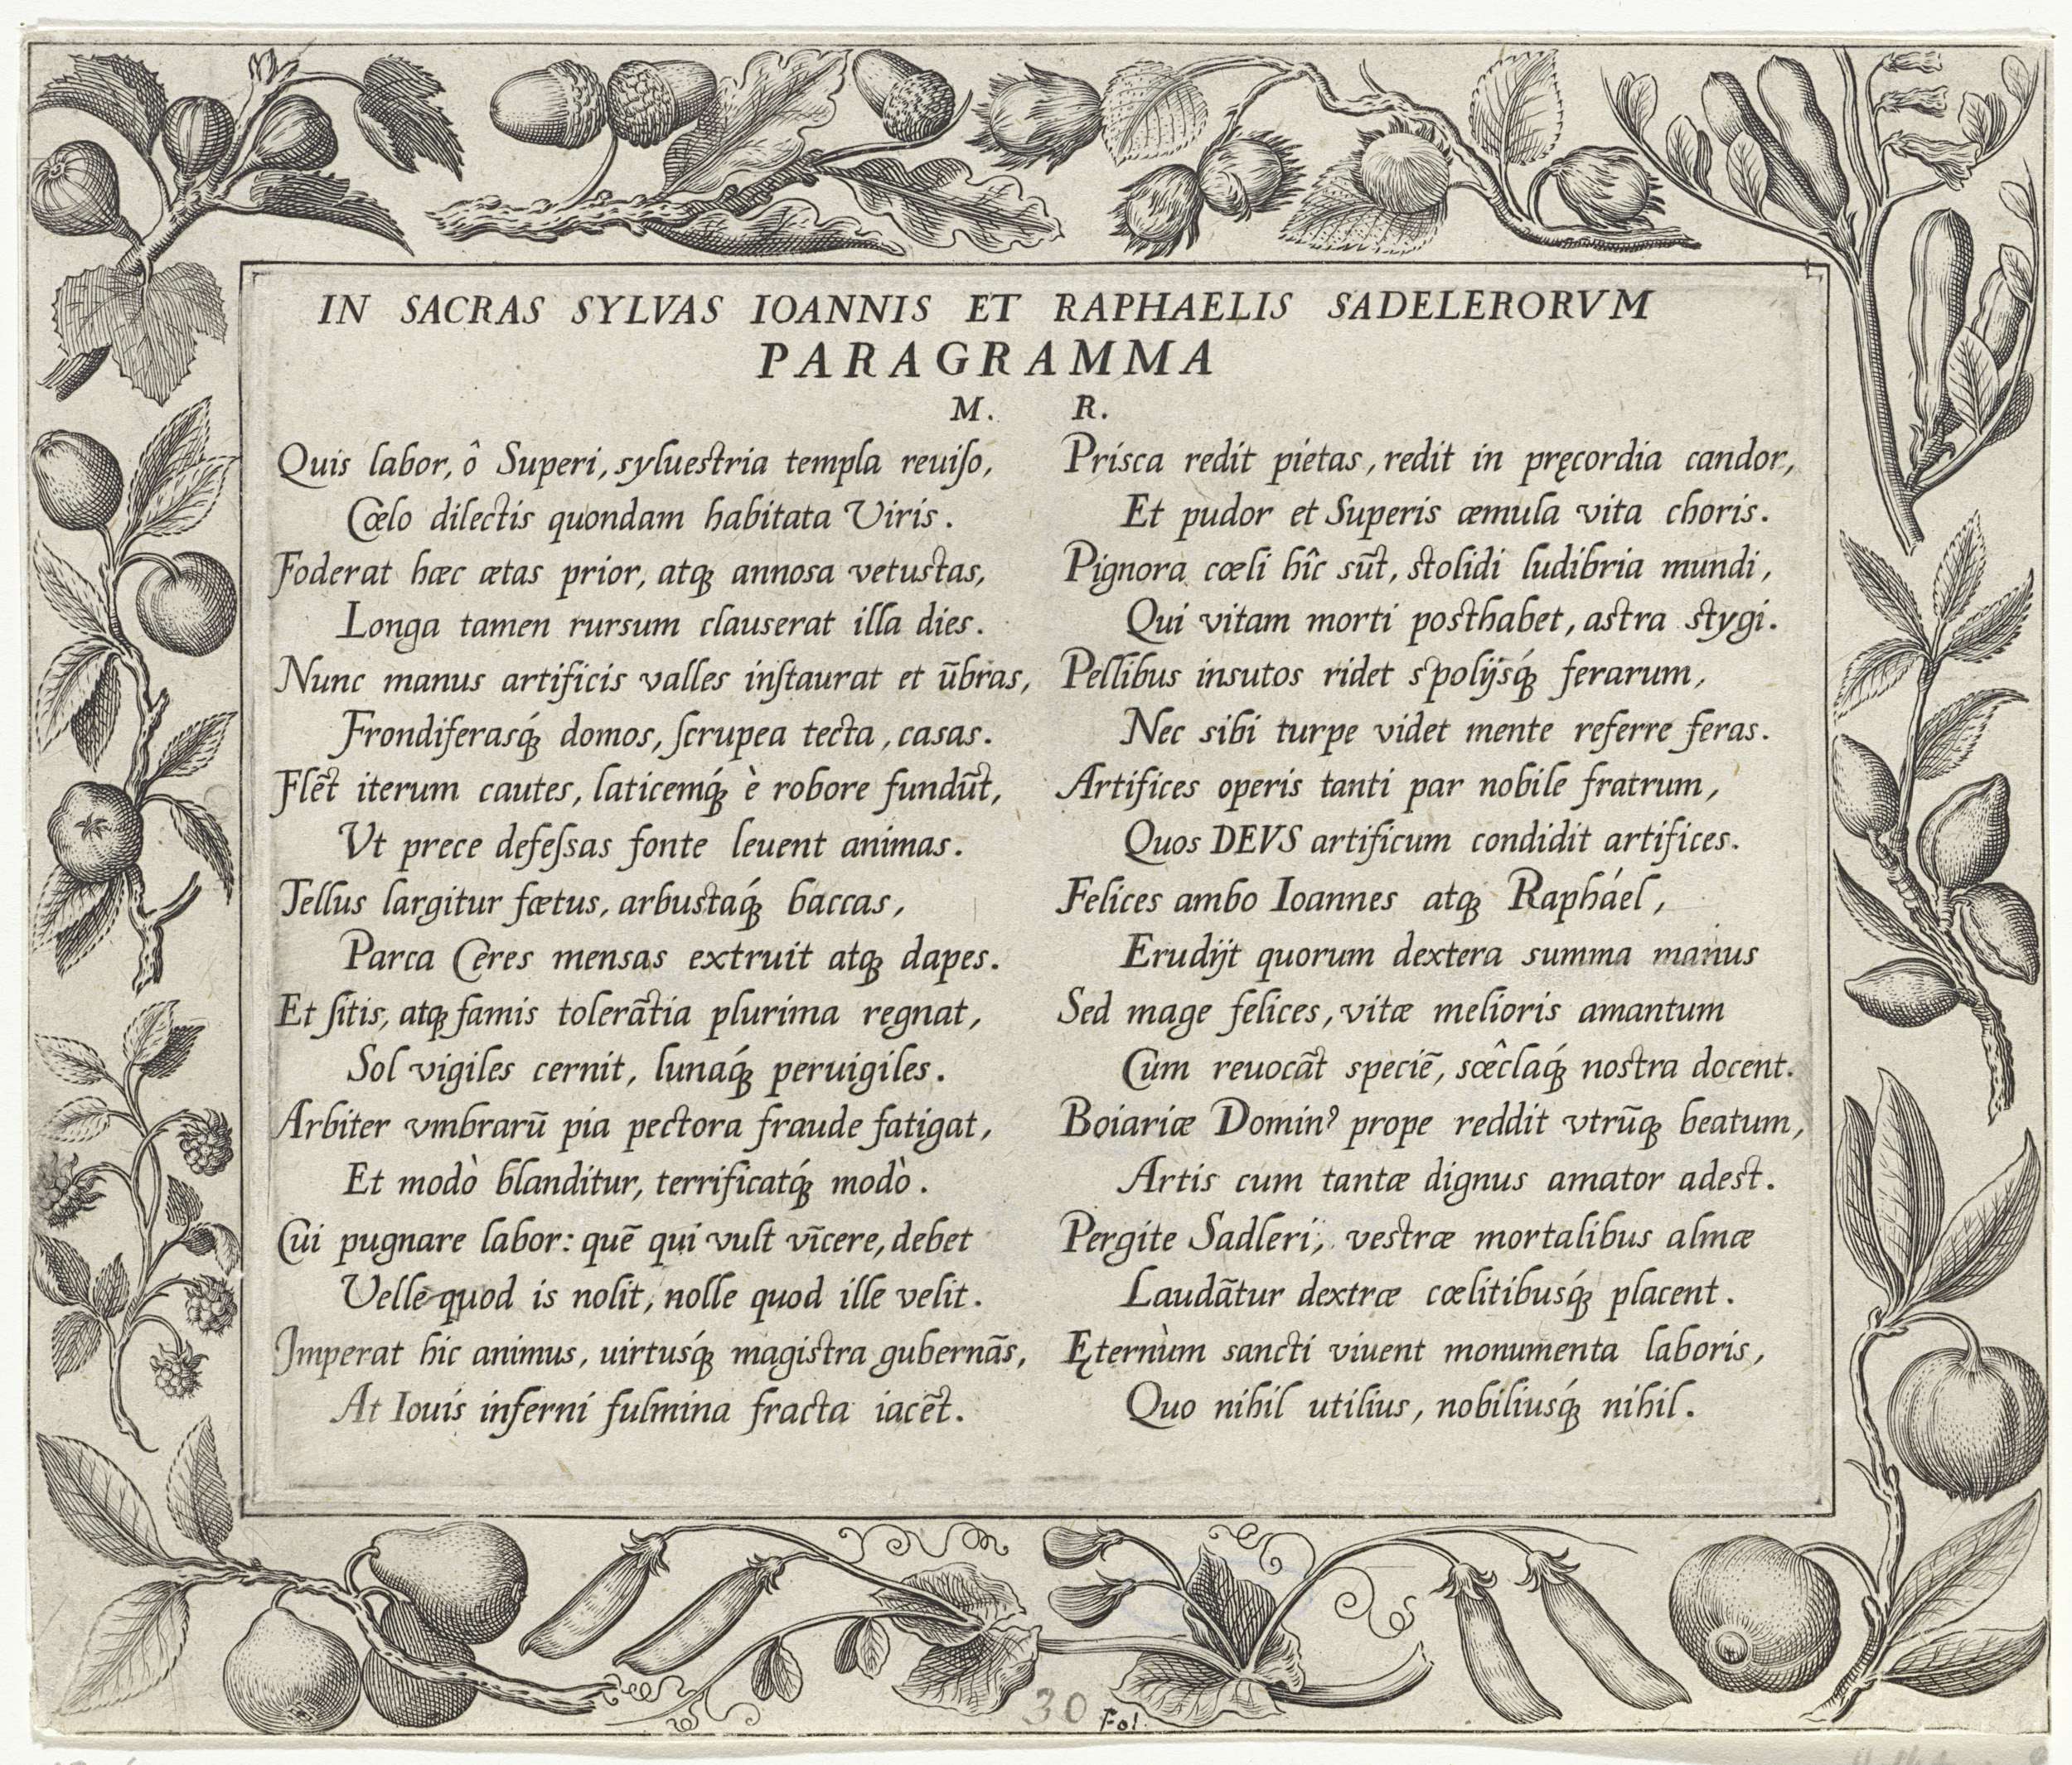 IN SACRAS SYLVAS IOANNIS ET RAPHAELIS SADELERORVM
PARAGRAMMA
M. R.
Quis labor, ô Superi, syluestria templa reuiſo,
Cœlo dilectis quondam habitata Viris.
Foderat hæc ætas prior, atq̨ annosa vetustas,
Longa tamen rursum clauserat illa dies.
Nunc manus artificis valles inſtaurat et ũbras,
Frondiferasq́ domos, ſcrupea tecta, casas.
Flẽt iterum cautes, laticemq́ è robore fundũt,
Vt prece defeſsas fonte leuent animas.
Tellus largitur fœtus, arbustaq́ baccas,
Parca Ceres mensas extruit atq̨ dapes.
Et ſitis, atq̨ famis tolerãtia plurima regnat,
Sol vigiles cernit, lunaq́ peruigiles.
Arbiter vmbrarũ pia pectora fraude fatigat,
Et modò blanditur, terrificatq́ modò.
Cui pugnare labor: quẽ qui vult vĩcere, debet
Velle quod is nolit, nolle quod ille velit.
Imperat hic animus, uirtusq́ magistra gubernãs,
At Iouis inferni fulmina fracta iacẽt.
Prisca redit pietas, redit in pręcordia candor,
Et pudor et Superis æmula vita choris.
Pignora cœli hîc sũt, stolidi ludibria mundi,
Qui vitam morti posthabet, astra stygi.
Pellibus insutos ridet spolijsq́ ferarum,
Nec sibi turpe videt mente referre feras.
Artifices operis tanti par nobile fratrum,
Quos DEVS artificum condidit artifices.
Felices ambo Ioannes atq̨ Raphael,
Erudijt quorum dextera summa manus
Sed mage felices, vitæ melioris amantum
Cum reuocãt speciẽ, sœ̂claq́ nostra docent.
Boiariæ Dominꝰ prope reddit vtrũq̨ beatum,
Artis cum tantæ dignus amator adest.
Pergite Sadleri, vestræ mortalibus almæ
Laudãtur dextræ cœlitibusq́ placent.
Ęternùm sancti viuent monumenta laboris,
Quo nihil utilius, nobiliusq́ nihil.
30 Fol.